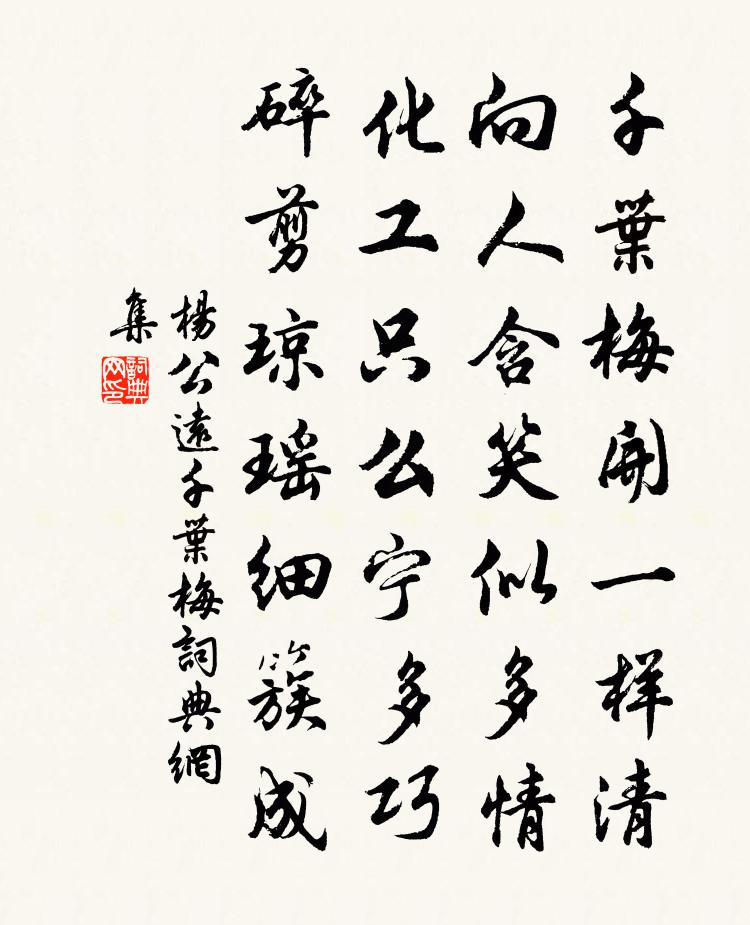 千葉梅開一样清
向人含笑似多情
化工只么宁多巧
碎剪琼瑶细簇成
楊公遠千葉梅詞典網
集
詞典
网印